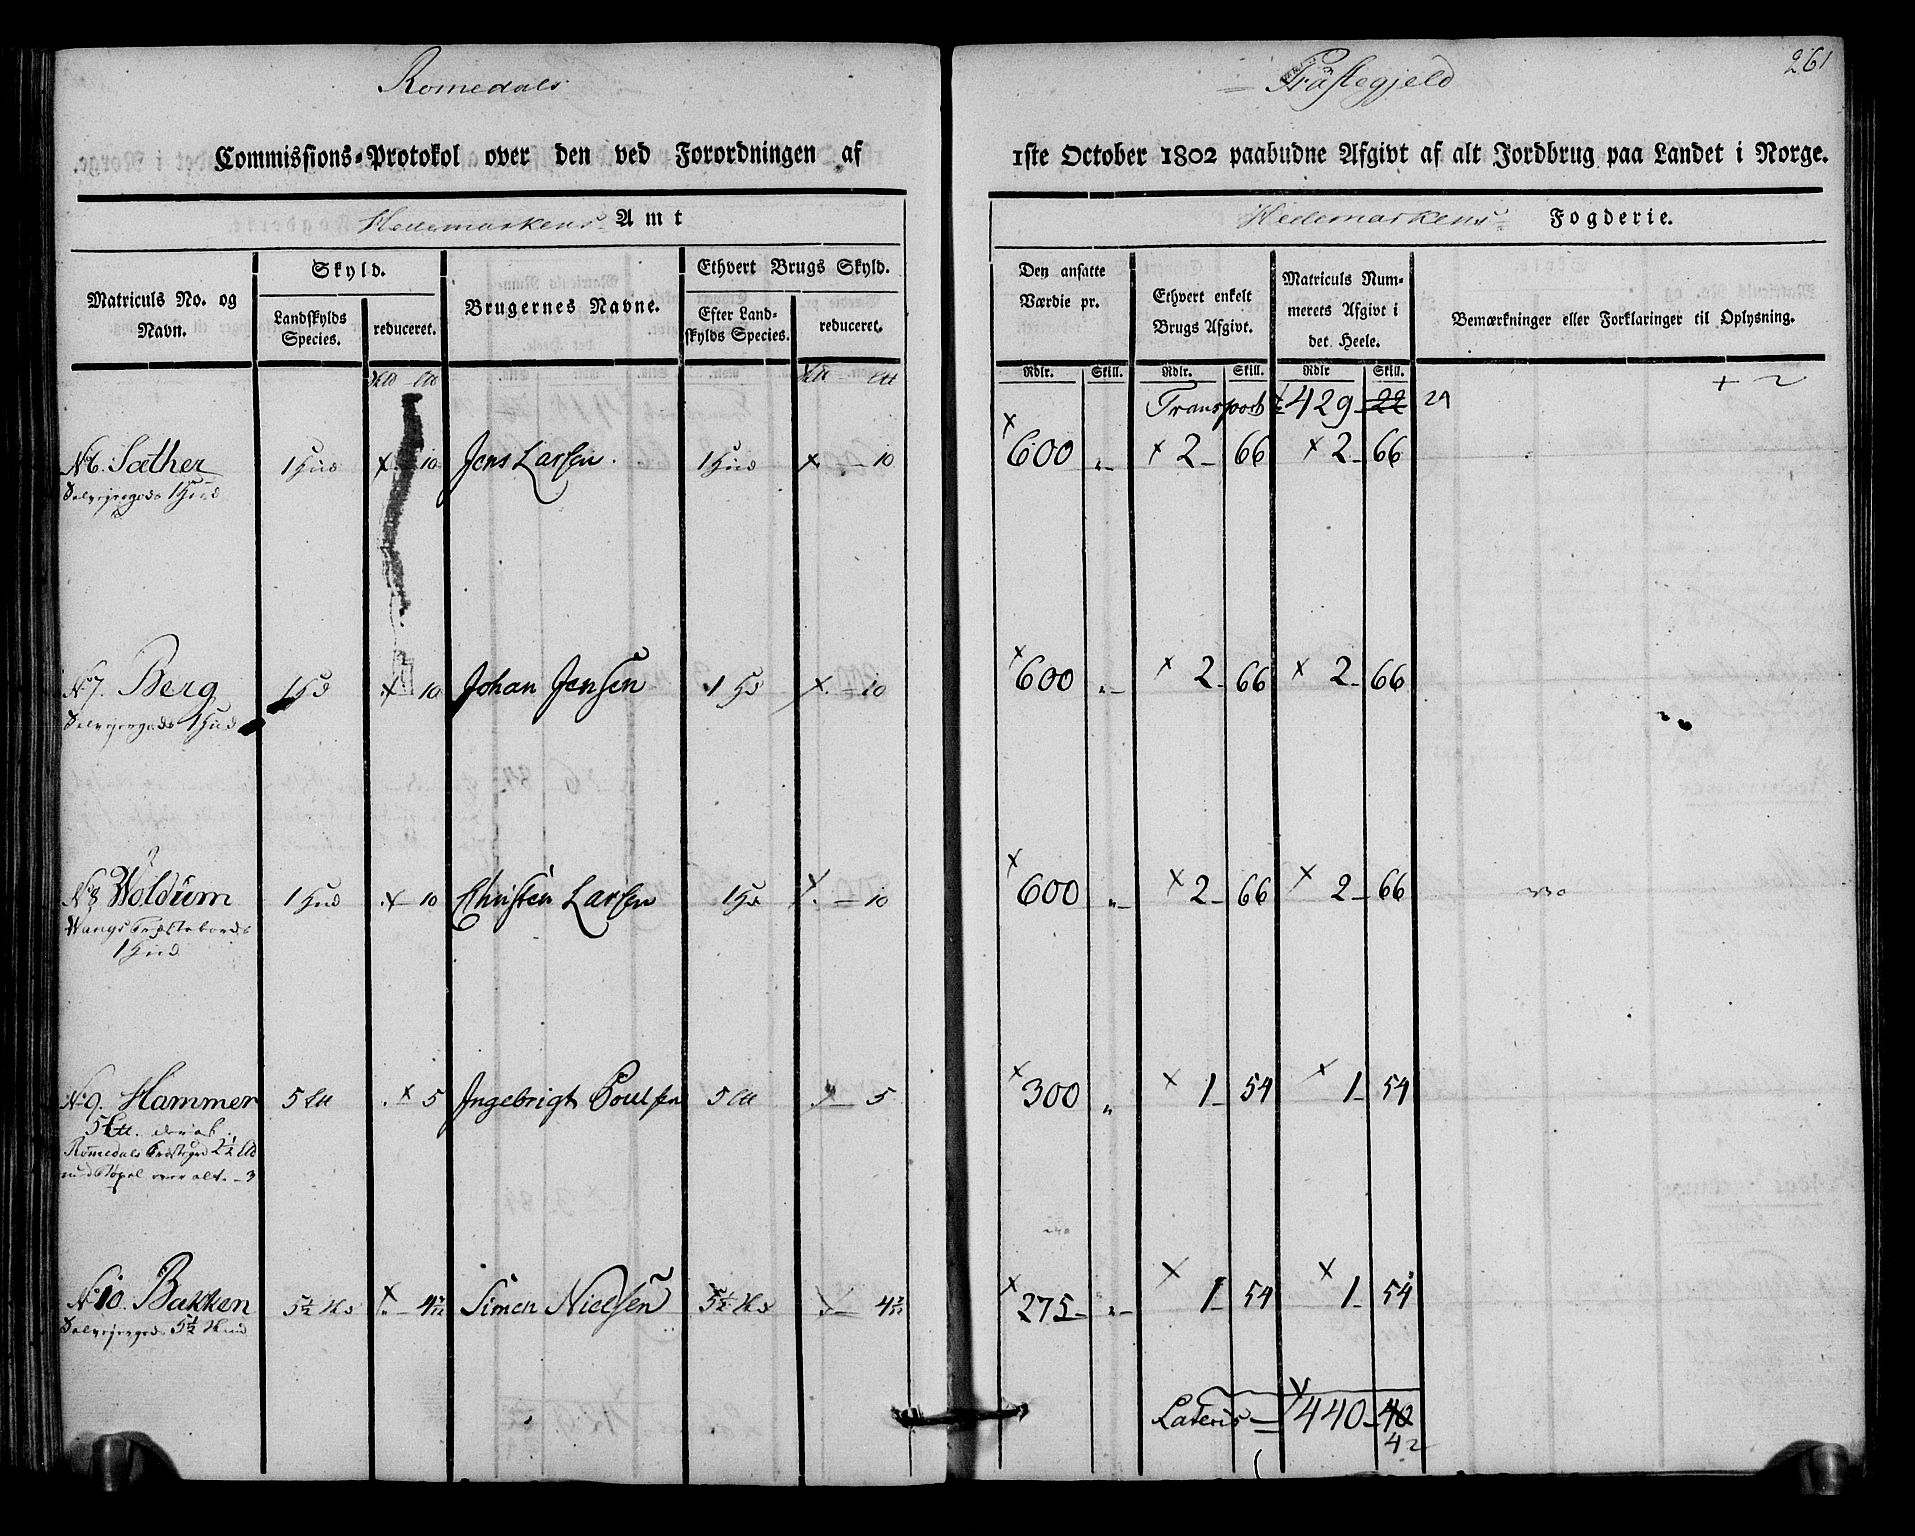 Romedals Præstegjeld 261
Commissions-Protokol over den ved Forordningen af 1ste October 1802 paabudne Afgivt af alt Jordbrug paa Landet i Norge.
Hedemarkens Amt Hedemarkens Fogderie.
Matriculs No. og Navn.
Skyld.
Landskylds Species.
reduceret.
Brugernes Navne.
Ethvert Brugs Skyld.
Efter Landskylds Species.
reduceret.
Den ansatte Værdie pr.
Ethvert enkelt Brugs Afgivt.
Matriculs Nummerets Afgivt i det Heele.
Bemærkninger eller Forklaringer til Oplysning.
Rdlr. Skill. Rdlr. Skill. Rdlr Skill.
Transport 429 22 24
N 6. Sæther 1 Hud 10 Jens Larsen. 1 Hud 10 600 2 66 2 66
1 Hud
N 7. Berg 1 Hd 10 Johan Jensen 1 Hd 10 600 2 66 2 66
1 Hud
N 8 Woldum 1 Hud 10 Christen Larsen 1 Hd 10 600 2 66 2 66
Wangs Præstebords
1 Hud
N 9. Hammer 5 5 Ingebrigt Poulsen 5 5 300 1 54 1 54
Romedals 2½
over alt 3
N 10. Bakken 5½ Simen Nielsen 5½ 275 1 54 1 54
5½
Lateris 440 40
42